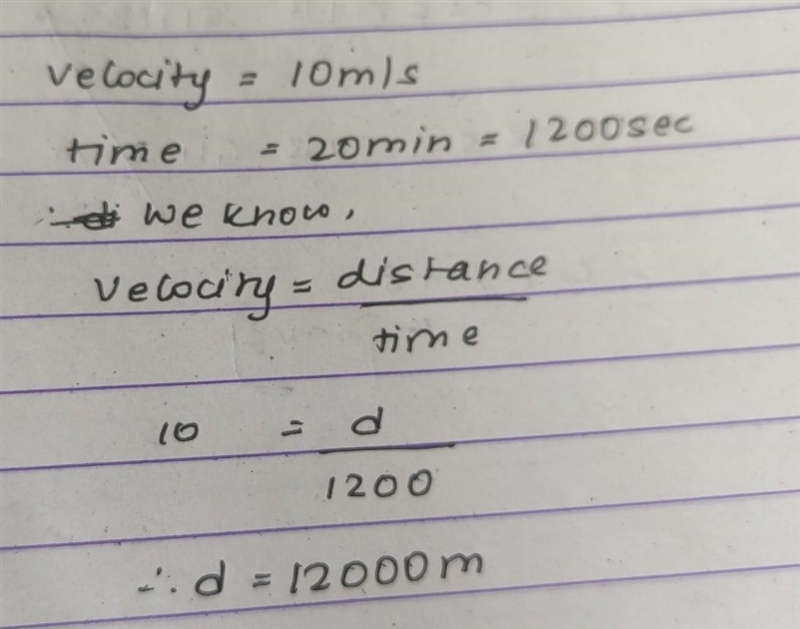 velocity = 10m/s
time = 20min = 1200sec
we know,
velocity = distance
time
10 = d
1200
∴ d = 12000m